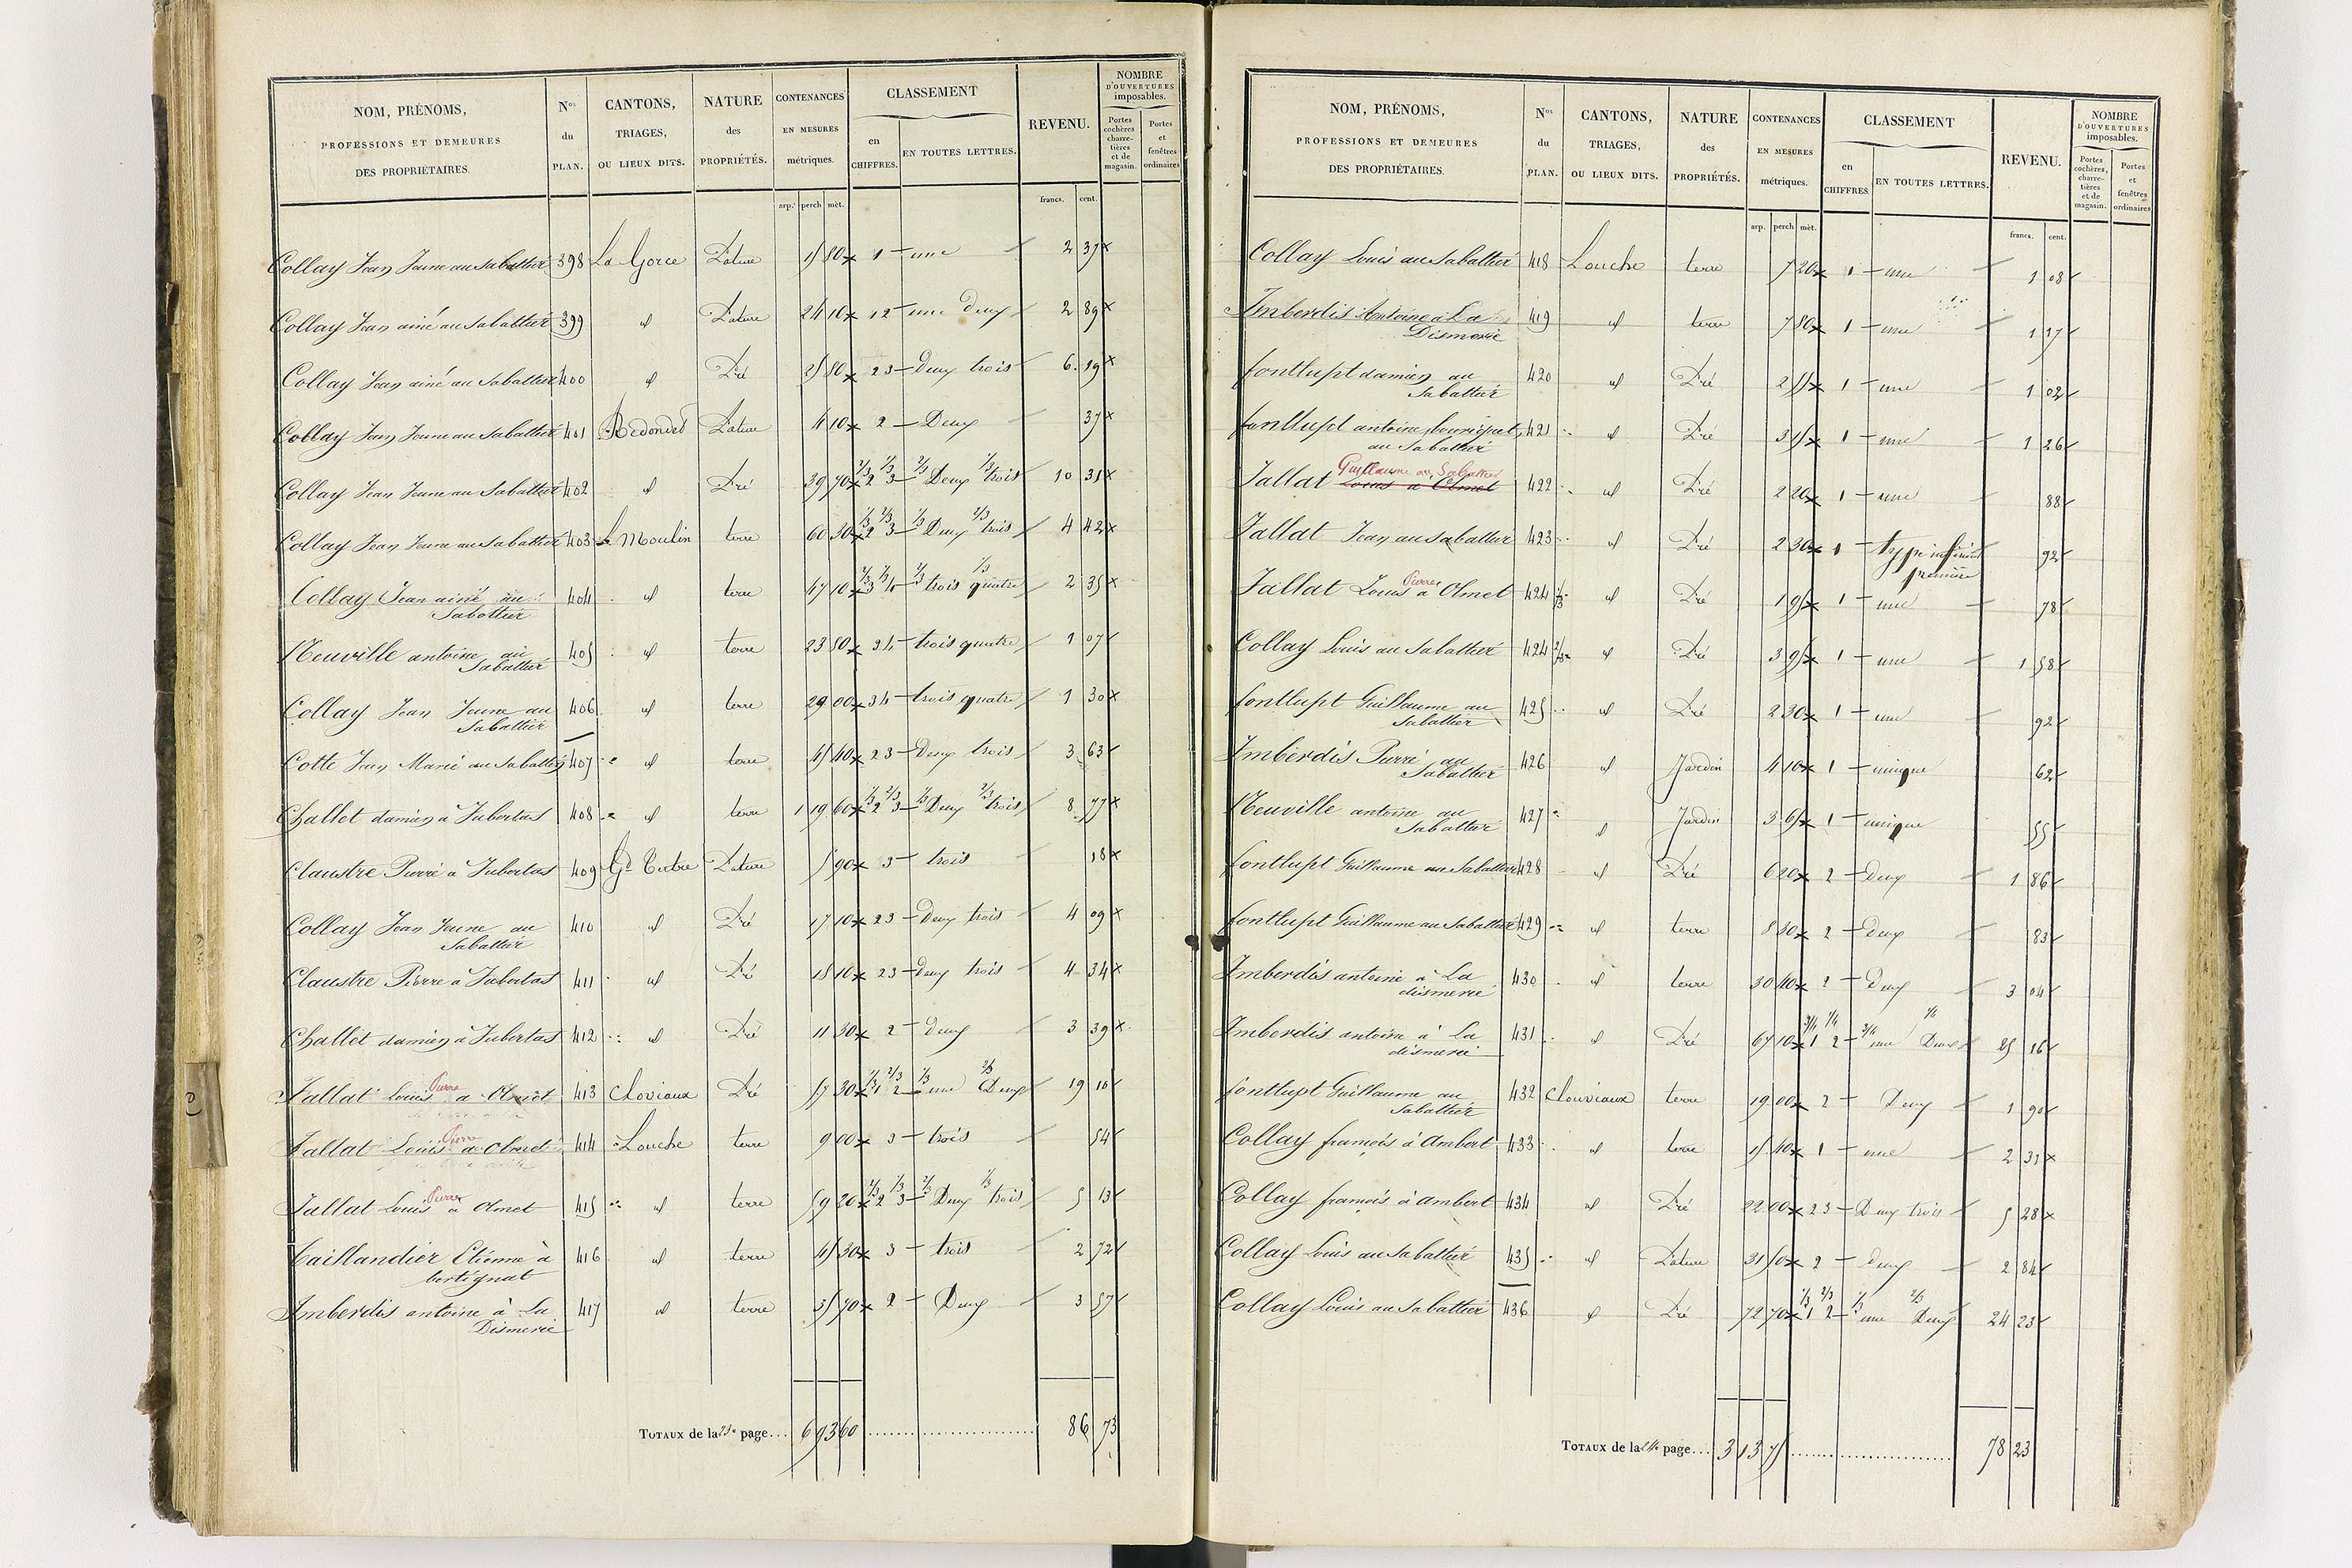 NOM, PRÉNOMS, PROFESSIONS ET DEMEURES DES PROPRIÉTAIRES. | Nos du PLAN. | CANTONS, TRIAGES, OU LIEUX DITS. | NATURE des PROPRIÉTÉS. | CONTENANCES EN MESURES métriques. | CLASSEMENT en CHIFFRES. | EN TOUTES LETTRES. | REVENU. | NOMBRE D'OUVERTURES imposables. Portes cochères charretières et de magasin. | Portes et fenêtres ordinaires
arp. perch mèt. francs. cent.
Collay Jean Jeune au Sabattier 398 La Gorce Pature 15 80 1 une 2 37
Collay Jean ainé au Sabattier 399 id Pature 24 10 12 une deux 2 89
Collay Jean ainé au Sabattier 400 id Pré 25 80 23 Deux trois 6 19
Collay Jean Jeune au Sabattier 401 Redondet Pature 4 10 2 Deux 37
Collay Jean Jeune au Sabattier 402 id Pré 39 70 2/3 2 1/3 3 2/3 Deux 1/3 trois 10 31
Collay Jean Jeune au Sabattier 403 Le Moulin terre 60 30 1/3 2 2/3 3 1/3 Deux 2/3 trois 4 42
Collay Jean ainé au Sabattier 404 id terre 47 10 2/3 3 1/3 4 2/3 trois 1/3 quatre 2 35
Neuville antoine au Sabattier 405 id terre 23 80 34 trois quatre 1 07
Collay Jean Jeune au Sabattier 406 id terre 29 00 34 trois quatre 1 30
Cotte Jean Marie au Sabattier 407 id terre 45 40 23 Deux trois 3 63
Challet damien a Jubertas 408 id terre 1 19 60 1/3 2 2/3 3 1/3 Deux 2/3 trois 8 77
Claustre Pierre a Jubertas 409 Gd Tertre Pature 5 90 3 trois 18
Collay Jean Jeune au Sabattier 410 id Pré 17 10 23 Deux trois 4 09
Claustre Pierre a Jubertas 411 id Pré 18 10 23 Deux trois 4 34
Challet damien a Jubertas 412 id Pré 11 30 2 Deux 3 39
Tallat Louis Pierre a Olmet 413 Cloviaux Pré 57 30 1/3 1 2/3 2 1/3 une 2/3 Deux 19 10
Tallat Louis Pierre a Olmet 414 Louche terre 9 00 3 trois 54
Tallat Louis Pierre a Olmet 415 id terre 59 20 2/3 2 1/3 3 2/3 Deux 1/3 trois 5 13
Taillandier Etienne à bertignat 416 id terre 45 30 3 trois 2 72
Imberdis antoine à La Dismerie 417 id terre 35 70 2 Deux 3 57
TOTAUX de la 23e page... 6 93 60 86 73
NOM, PRÉNOMS, PROFESSIONS ET DEMEURES DES PROPRIÉTAIRES. | Nos du PLAN. | CANTONS, TRIAGES, OU LIEUX DITS. | NATURE des PROPRIÉTÉS. | CONTENANCES EN MESURES métriques. | CLASSEMENT en CHIFFRES. | EN TOUTES LETTRES. | REVENU. | NOMBRE D'OUVERTURES imposables. Portes cochères, charretières et de magasin. | Portes et fenêtres ordinaires
arp. perch mèt. francs. cent.
Collay Louis au Sabattier 418 Louche terre 7 20 1 une 1 08
Imberdis Antoine à La Dismerie 419 id terre 7 80 1 une 1 17
fontlupt damien au Sabattier 420 id Pré 2 55 1 une 1 02
fontlupt antoine bouriquet au Sabattier 421 id Pré 3 15 1 une 1 26
Tallat Guillaume au Sabattier Louis a Olmet 422 id Pré 2 20 1 une 88
Tallat Jean au Sabattier 423 id Pré 2 30 1 type inférieur première 92
Tallat Louis Pierre a Olmet 424 1/3 id Pré 1 95 1 une 78
Collay Louis au Sabattier 424 2/3 id Pré 3 95 1 une 1 58
fontlupt Guillaume au Sabattier 425 id Pré 2 30 1 une 92
Imberdis Pierre au Sabattier 426 id Jardin 4 10 1 unique 62
Neuville antoine au Sabattier 427 id Jardin 3 65 1 unique 55
fontlupt Guillaume au Sabattier 428 id Pré 6 20 2 Deux 1 86
fontlupt Guillaume au Sabattier 429 id terre 8 30 2 Deux 83
Imberdis antoine à La dismerie 430 id terre 30 40 2 Deux 3 04
Imberdis antoine à La dismerie 431 id Pré 67 10 3/4 1 1/4 2 3/4 une 1/4 Deux 25 16
fontlupt Guillaume au Sabattier 432 Clouviaux terre 19 00 2 Deux 1 90
Collay françois à Ambert 433 id terre 15 40 1 une 2 31
Collay françois à ambert 434 id Pré 22 00 23 Deux trois 5 28
Collay Louis au Sabattier 435 id Pature 31 50 2 deux 2 84
Collay Louis au Sabattier 436 id Pré 72 70 1/3 1 2/3 2 1/3 une 2/3 Deux 24 23
TOTAUX de la 24e page... 3 13 75 78 23